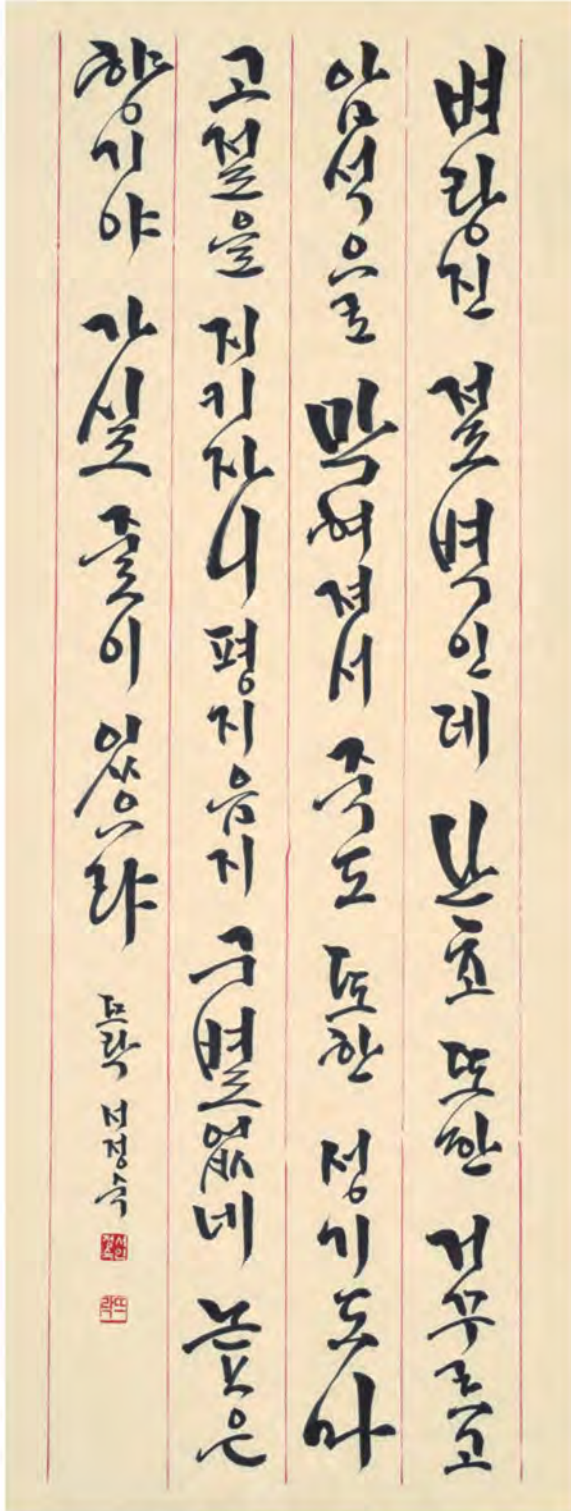 벼랑진 절벽인데 난초 또한 거꾸로고
암석으로 막혀져서 죽도 또한 성기도마
고절을 지키자니 평지음지 구별없네 높은
향기야 가실 줄이 있으랴
뜨락 서정숙
뜨락